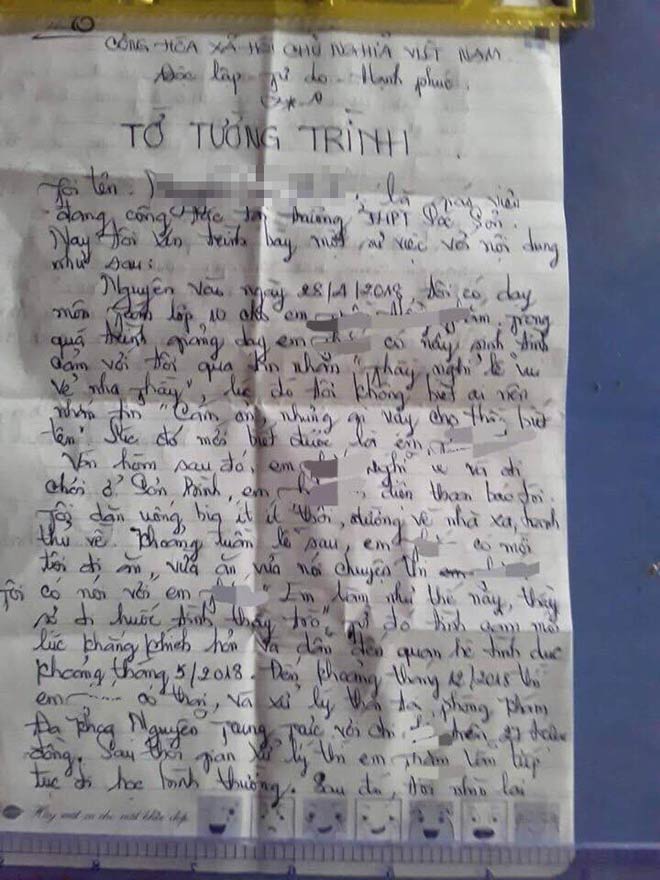 CỘNG HÒA XÃ HỘI CHỦ NGHĨA VIỆT NAM
Độc lập tự do Hạnh phúc
TỜ TƯỜNG TRÌNH
Tôi tên: là giáo viên
đang công tác tại trường THPT Sóc Sơn.
Nay tôi xin trình bày một sự việc với nội dung
như sau:
Nguyên vào ngày 28/4/2018 tôi có dạy
môn lớp 10 cho em trong
quá trình giảng dạy em có nảy sinh tình
cảm với tôi qua tin nhắn "thầy nghỉ lễ vui
vẻ nha thầy", lúc đó tôi không biết ai nên
nhắn tin "Cám ơn, nhưng ai vậy cho thầy biết
tên" lúc đó mới biết được là em
Vào hôm sau đó, em nghỉ và đi
chơi ở Sơn Bình, em điện thoại báo tôi.
Tôi dặn uống bia ít ít thôi, đường về nhà xa, tranh
thủ về. Khoảng tuần lễ sau, em có mời
tôi đi ăn, vừa ăn vừa nói chuyện thì em
Tôi có nói với em "Em làm như thế này, thầy
sợ đi nước tình thầy trò" từ đó tình cảm mỗi
lúc khăng khít hơn và dẫn đến quan hệ tình dục
khoảng tháng 5/2018. Đến khoảng tháng 12/2018 thì
em có thai, và xử lý thai tại phòng khám
Đa khoa Nguyễn Trung với chi 21 triệu
đồng. Sau thời gian xử lý thì em tiếp
tục đi học bình thường. Sau đó, tôi nhớ lại
Hãy một